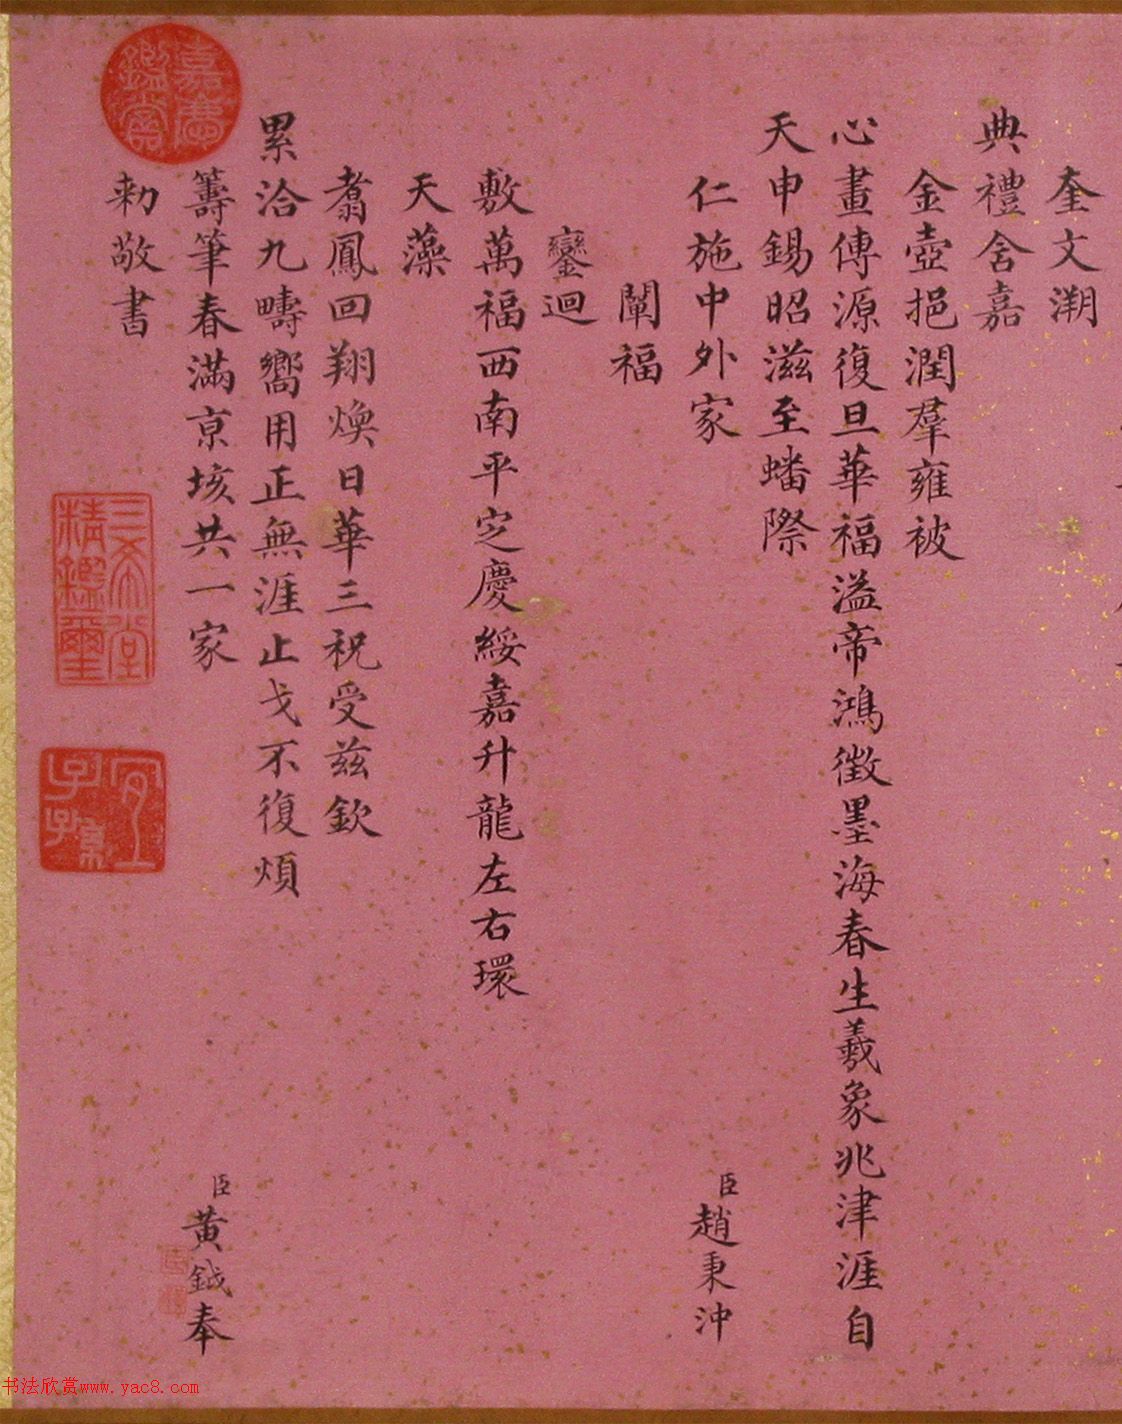 奎文溯
典禮舍嘉
金壺挹潤羣雍被
心畫傳源復旦華福溢帝鴻徵墨海春生羲象兆津涯自
天申錫昭滋至蟠際
仁施中外家
臣趙秉沖
闡福
鑾迴
敷萬福西南平定慶綏嘉升龍左右環
天藻
翥鳳回翔煥日華三祝受兹欽
累洽九疇嚮用正無涯止戈不復煩
籌筆春滿京垓共一家
臣黃鉞奉
勅敬書
嘉慶鑑賞
三希堂精鑑璽
宜子孫
书法欣赏www.yac8.com